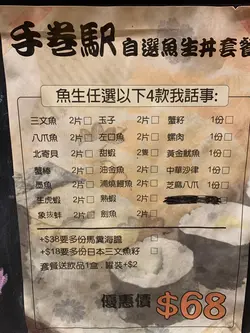 手卷駅 自選魚生丼套餐
魚生任選以下4款我話事:
三文魚 2片□ 玉子 2片□ 蟹籽 1份□
八爪魚 2片□ 左口魚 2片□ 螺肉 1份□
北寄貝 2片□ 甜蝦 2隻□ 黃金魷魚 1份□
蟹棒 2片□ 油甘魚 2片□ 中華沙律 1份□
墨魚 2片□ 浦燒鰻魚 2片□ 芝麻八爪 1份□
生虎蝦 2片□ 熟蝦 2片□
象拔蚌 2片□ 劍魚 2片□
+$38要多份馬糞海膽 □
+$18要多份日本三文魚籽 □
套餐送飲品1盒, 罐裝+$2
優惠價 $68